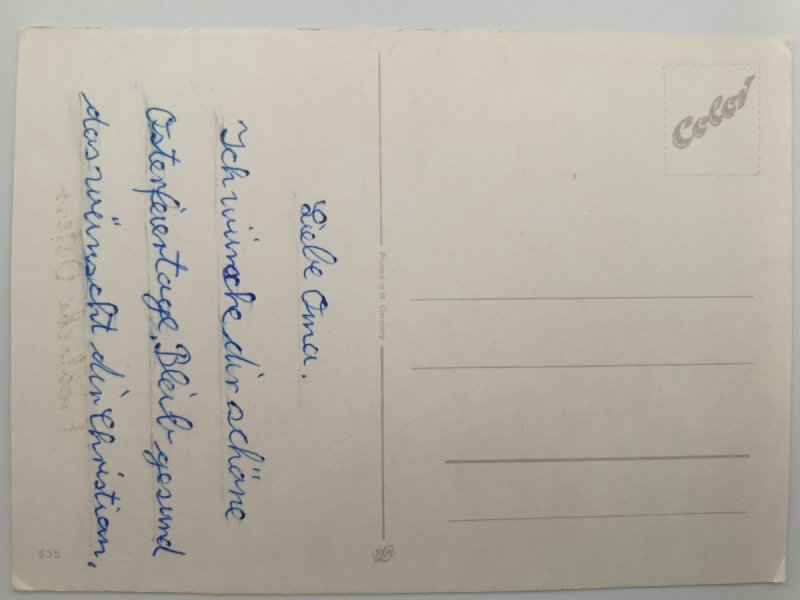 Liebe Oma.
Ich wünsche dir schöne
Osterfeiertage. Bleib gesund
das wünscht dir Christian.
Color
Printed in W.-Germany
635